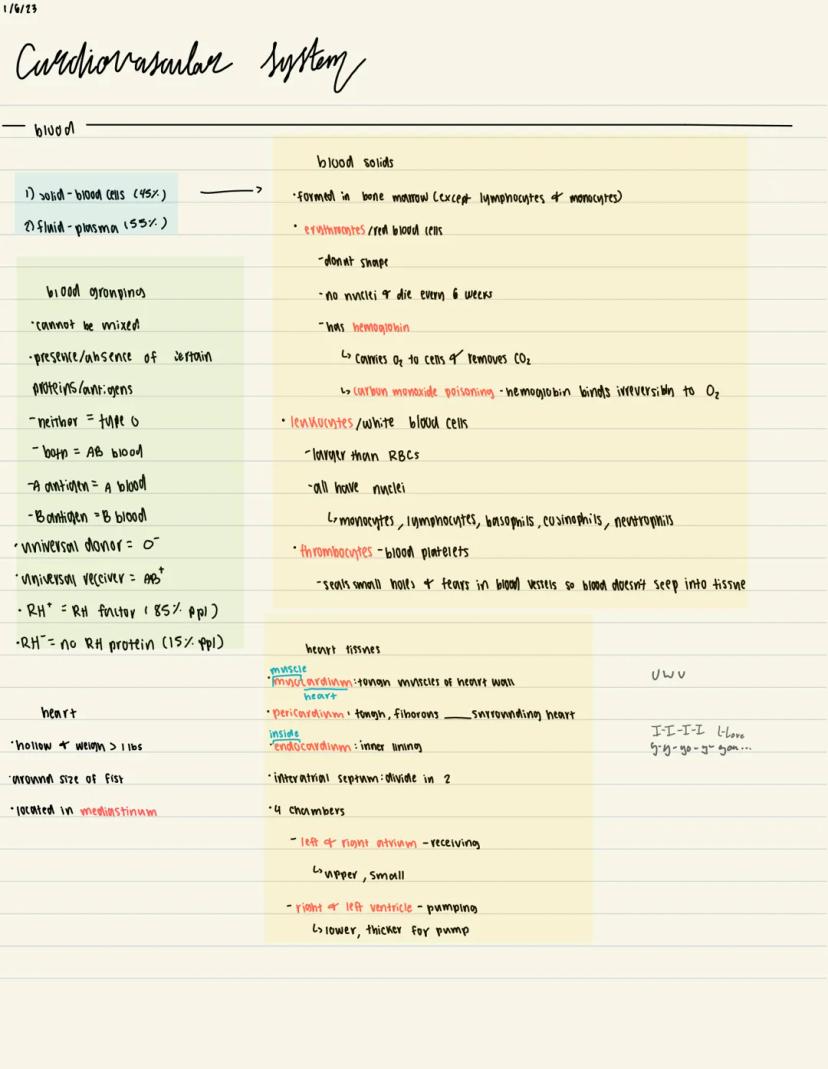 1/6/23
Cardiovascular System
blood
1) solid - blood cells (45%)
2) fluid - plasma (55%)
blood groupings
• cannot be mixed
• presence/absence of certain
proteins/antigens
- neither = type O
- both = AB blood
- A antigen = A blood
- B antigen = B blood
• universal donor = O⁻
• universal receiver = AB⁺
• RH⁺ = RH factor (85% ppl)
• RH⁻ = no RH protein (15% ppl)
heart
• hollow & weigh > 1 lbs
• around size of fist
• located in mediastinum
blood solids
• formed in bone marrow (except lymphocytes & monocytes)
• erythrocytes/red blood cells
- donut shape
- no nuclei & die every 6 weeks
- has hemoglobin
↳ carries O₂ to cells & removes CO₂
↳ carbon monoxide poisoning - hemoglobin binds irreversibly to O₂
• leukocytes/white blood cells
- larger than RBCs
- all have nuclei
↳ monocytes, lymphocytes, basophils, eosinophils, neutrophils
• thrombocytes - blood platelets
- seals small holes & tears in blood vessels so blood doesn't seep into tissue
heart tissues
muscle
• myocardium: tough muscles of heart wall
heart
• pericardium: tough, fiborous ___ surrounding heart
inside
• endocardium: inner lining
• interatrial septum: divide in 2
• 4 chambers
- left & right atrium - receiving
↳ upper, small
- right & left ventricle - pumping
↳ lower, thicker for pump
UWU
I-I-I-I l-love
y-y-yo-y- you...